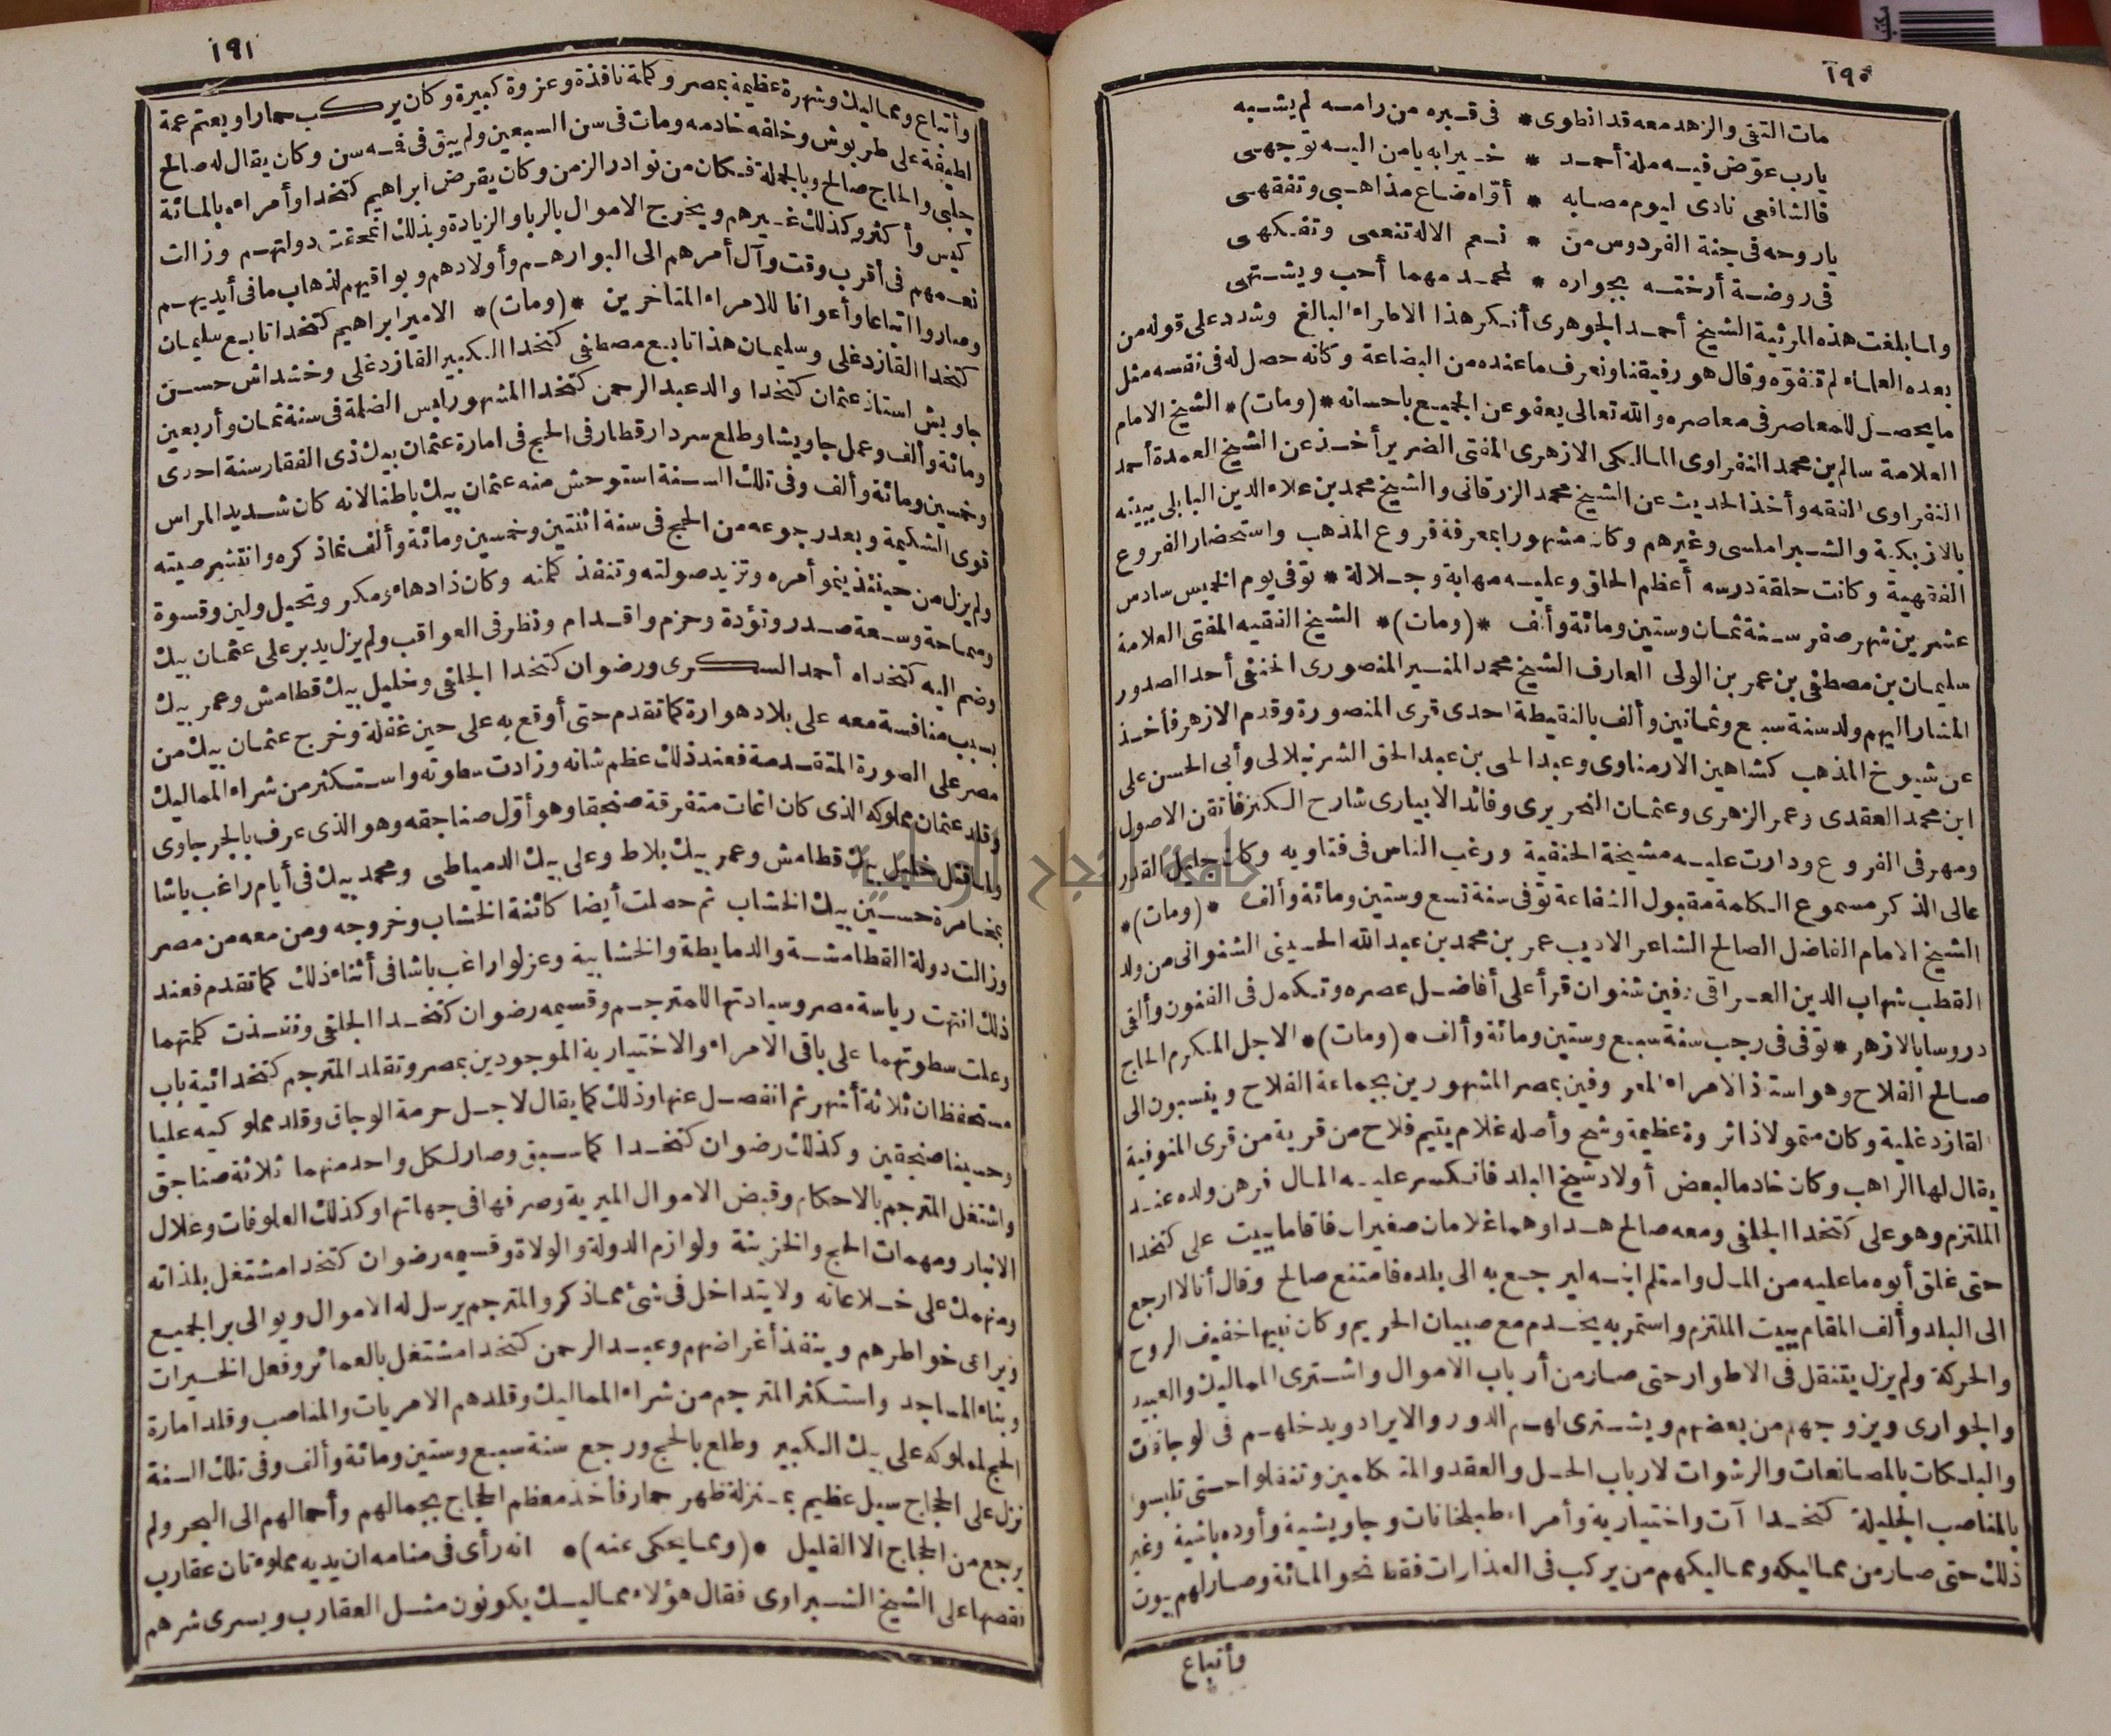 ١٩٠
مات التقى والزهد معه قد انطوى * فى قبره من رامه لم يشبه
يارب عوّض فيه ملة أحمد * خيرا به يا من اليه توجهى
فالشافعى نادى ليوم مصابه * أوّاه ضاع مذاهبى وتفقهى
ياروحه فى جنة الفردوس من * نعم الاله تنعمى وتفكهى
فى روضة أرختـه بجواره * لمحمد مهما أحب ويشتهى
ولما بلغت هذه المرثية الشيخ أحمد الجوهرى أنكر هذا الاطراء البالغ وشدد على قوله من
بعده العلماء لم تتفوّه وقال هو رفيقنا ونعرف ما عنده من البضاعة وكانه حصل له فى نفسه مثل
ما يحصل للمعاصر فى معاصره والله تعالى يعفو عن الجميع باحسانه * (ومات) * الشيخ الامام
العلامة سالم بن محمد النفراوى المالكى الازهرى المفتى الضرير أخذ عن الشيخ العمدة أحمد
النفراوى الفقه وأخذ الحديث عن الشيخ محمد الزرقانى والشيخ محمد بن علاء الدين البابلى ببيته
بالازبكية والشبراملسى وغيرهم وكان مشهورا بمعرفة فروع المذهب واستحضار الفروع
الفقهية وكانت حلقة درسه أعظم الحلق وعليه مهابة وجلالة * توفى يوم الخميس سادس
عشرين شهر صفر سنة ثمان وستين ومائة وألف * (ومات) * الشيخ الفقيه المفتى العلامة
سليمان بن مصطفى بن عمر بن الولى العارف الشيخ محمد المنير المنصورى الحنفى أحد الصدور
المشار اليهم ولد سنة سبع وثمانين وألف بالنقيطة احدى قرى المنصورة وقدم الازهر فأخذ
عن شيوخ المذهب كشاهين الارمناوى وعبد الحى بن عبد الحق الشرنبلالى وأبى الحسن على
ابن محمد العقدى وعمر الزهرى وعثمان النحريرى وفائد الابيارى شارح الكنز فأتقن الاصول
ومهر فى الفروع ودارت عليه مشيخة الحنفية ورغب الناس فى فتاويه وكان جليل القدر
عالى الذكر مسموع الكلمة مقبول الشفاعة توفى سنة تسع وستين ومائة وألف * (ومات) *
الشيخ الامام الفاضل الصالح الشاعر الاديب عمر بن محمد بن عبد الله الحسينى الشنوانى من ولد
القطب شهاب الدين العراقى دفين شنوان قرأ على أفاضل عصره وتكمل فى الفنون وألقى
دروسا بالازهر * توفى فى رجب سنة سبع وستين ومائة وألف * (ومات) * الاجل المكرم الحاج
صالح الفلاح وهو استاذ الامراء المعروفين بمصر المشهورين بجماعة الفلاح وينسبون الى
القازدغلية وكان متمولا ذا ثروة عظيمة وشح وأصله غلام يتيم فلاح من قرية من قرى المنوفية
يقال لها الراهب وكان خادما لبعض أولاد شيخ البلد فانكسر عليه المال فرهن ولده عند
الملتزم وهو على كتخدا الجلفى ومعه صالح هذا وهما غلامان صغيران فاقاما ببيت على كتخدا
حتى غلق أبوه ما عليه من المال واستلم ابنه ليرجع به الى بلده فامتنع صالح وقال أنا لا ارجع
الى البلد وألف المقام ببيت الملتزم واستمر به يخدم مع صبيان الحريم وكان نبيها خفيف الروح
والحركة ولم يزل يتنقل فى الاطوار حتى صار من أرباب الاموال واشترى المماليك والعبيد
والجوارى ويزوجهم من بعضهم ويشترى لهم الدور والايراد ويدخلهم فى الوجاقات
والبلكات بالمصانعات والرشوات لارباب الحل والعقد والمتكلمين وتنقلوا حتى تلبسوا
بالمناصب الجليلة كتخدا آت واختيارية وأمراء طبلخانات وجاويشية وأوده باشية وغير
ذلك حتى صار من مماليكه ومماليكهم من يركب فى العذارات فقط نحو المائة وصار لهم بيوت
وأتباع
١٩١
وأتباع ومماليك وشهرة عظيمة بمصر وكلمة نافذة وعزوة كبيرة وكان يركب حمارا ويعتم عمة
لطيفة على طربوش وخلفه خادمه ومات فى سن السبعين ولم يبق فى فمه سن وكان يقال له صالح
جلبى والحاج صالح وبالجملة فكان من نوادر الزمن وكان يقرض ابراهيم كتخدا وأمراءه بالمائة
كيس وأكثر وكذلك غيرهم ويخرج الاموال بالربا والزيادة وبذلك انمحقت دولتهم وزالت
نعمهم فى أقرب وقت وآل أمرهم الى البوار هم وأولادهم وبواقيهم لذهاب ما فى أيديهم
وصاروا اتباعا وأعوانا للامراء المتاخرين * (ومات) * الامير ابراهيم كتخدا تابع سليمان
كتخدا القازدغلى وسليمان هذا تابع مصطفى كتخدا الكبير القازدغلى وخشداش حسن
جاويش استاذ عثمان كتخدا والد عبد الرحمن كتخدا المشهور لبس الضلمة فى سنة ثمان وأربعين
ومائة وألف وعمل جاويشا وطلع سردار قطار فى الحج فى امارة عثمان بيك ذى الفقار سنة احدى
وخمسين ومائة وألف وفى تلك السنة استوحش منه عثمان بيك باطنا لانه كان شديد المراس
قوى الشكيمة وبعد رجوعه من الحج فى سنة اثنتين وخمسين ومائة وألف نما ذكره وانتشر صيته
ولم يزل من حينئذ ينمو أمره وتزيد صولته وتنفذ كلمته وكان ذا دهاء ومكر وتحيل ولين وقسوة
وسماحة وسعة صدر وتؤدة وحزم واقدام ونظر فى العواقب ولم يزل يدبر على عثمان بيك
وضم اليه كتخداه أحمد السكرى ورضوان كتخدا الجلفى وخليل بيك قطامش وعمر بيك
بسبب منافسة معه على بلاد هوارة كما تقدم حتى أوقع به على حين غفلة وخرج عثمان بيك من
مصر على الصورة المتقدمة فعند ذلك عظم شانه وزادت سطوته واستكثر من شراء المماليك
وقلد عثمان مملوكه الذى كان اغات متفرقة صنجقا وهو أول صناجقه وهو الذى عرف بالجرجاوى
ولما قتل خليل بيك قطامش وعمر بيك بلاط وعلى بيك الدمياطى ومحمد بيك فى أيام راغب باشا
بمخامرة حسين بيك الخشاب ثم حصلت أيضا كائنة الخشاب وخروجه ومن معه من مصر
وزالت دولة القطامشة والدمايطة والخشابية وعزلوا راغب باشا فى أثناء ذلك كما تقدم فعند
ذلك انتهت رياسة مصر وسيادتها للمترجم وقسيمه رضوان كتخدا الجلفى ونفذت كلمتهما
وعلت سطوتهما على باقى الامراء والاختيارية الموجودين بمصر وتقلد المترجم كتخدائية باب
مستحفظان ثلاثة أشهر ثم انفصل عنها وذلك كما يقال لاجل حرمة الوجاق وقلد مملوكيه عليا
وحسينا صنجقين وكذلك رضوان كتخدا كما سبق وصار لكل واحد منهما ثلاثة صناجق
واشتغل المترجم بالاحكام وقبض الاموال الميرية وصرفها فى جهاتها وكذلك العلوفات وغلال
الانبار ومهمات الحج والخزينة ولوازم الدولة والولاة وقسيمه رضوان كتخدا مشتغل بلذاته
ومنهمك على خلاعاته ولا يتداخل فى شئ مما ذكر والمترجم يرسل له الاموال ويوالى بر الجميع
ويراعى خواطرهم وينفذ أغراضهم وعبد الرحمن كتخدا مشتغل بالعمائر وفعل الخيرات
وبناء المساجد واستكثر المترجم من شراء المماليك وقلدهم الامريات والمناصب وقلد امارة
الحج لمملوكه على بيك الكبير وطلع بالحج ورجع سنة سبع وستين ومائة وألف وفى تلك السنة
نزل على الحجاج سيل عظيم بمنزلة ظهر حمار فأخذ معظم الحجاج بجمالهم وأحمالهم الى البحر ولم
يرجع من الحجاج الا القليل * (ومما يحكى عنه) * انه رأى فى منامه ان يديه مملوءتان عقارب
فقصها على الشيخ الشبراوى فقال هؤلاء مماليك يكونون مثل العقارب ويسرى شرهم
جامعة النجاح الوطنية